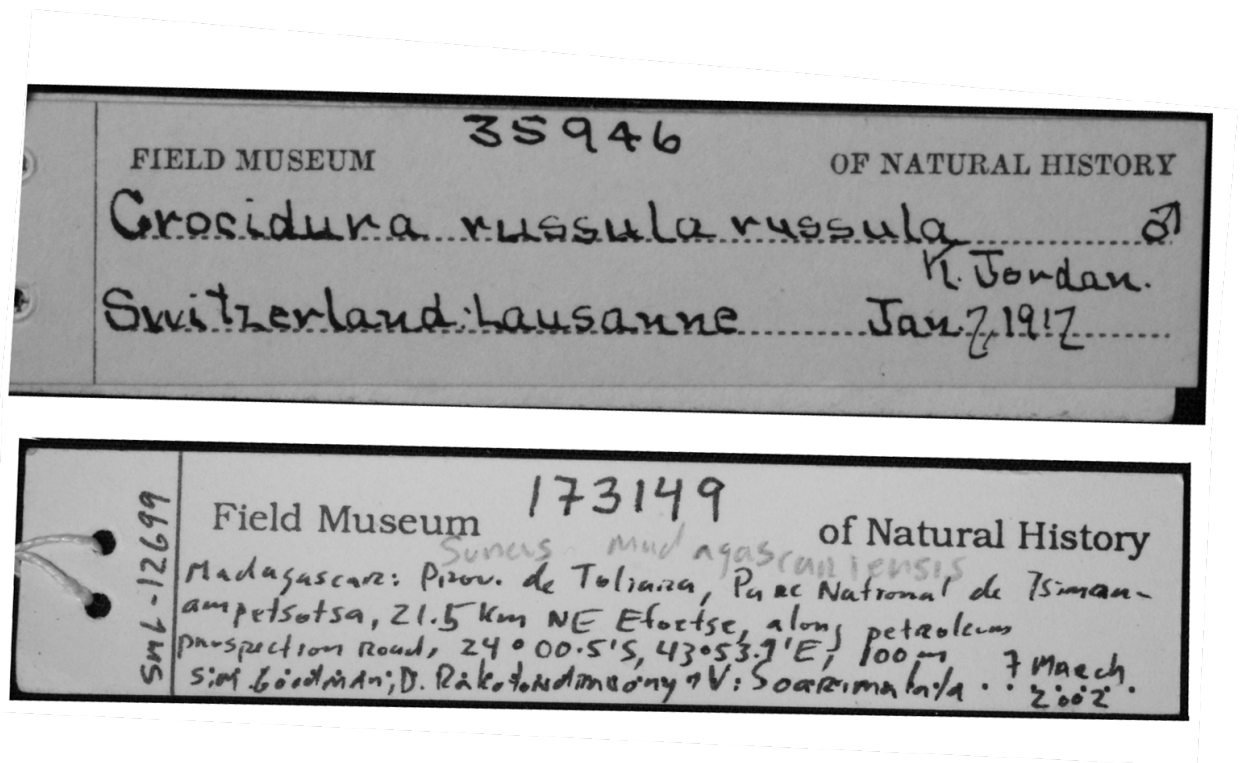 35946
FIELD MUSEUM OF NATURAL HISTORY
Crocidura russula russula ♂
K. Jordan.
Switzerland: Lausanne Jan. 7, 1917
173149
Field Museum of Natural History
Suncus madagascariensis
SML-12699
Madagascar: Prov. de Toliara, Parc National de Tsiman-
ampetsotsa, 21.5 km NE Efoetse, along petroleum
prospection road, 24°00.5'S, 43°53.7'E, 100 m 7 March
S.M. Goodman; D. Rakotondravony & V. Soarimalala 2002